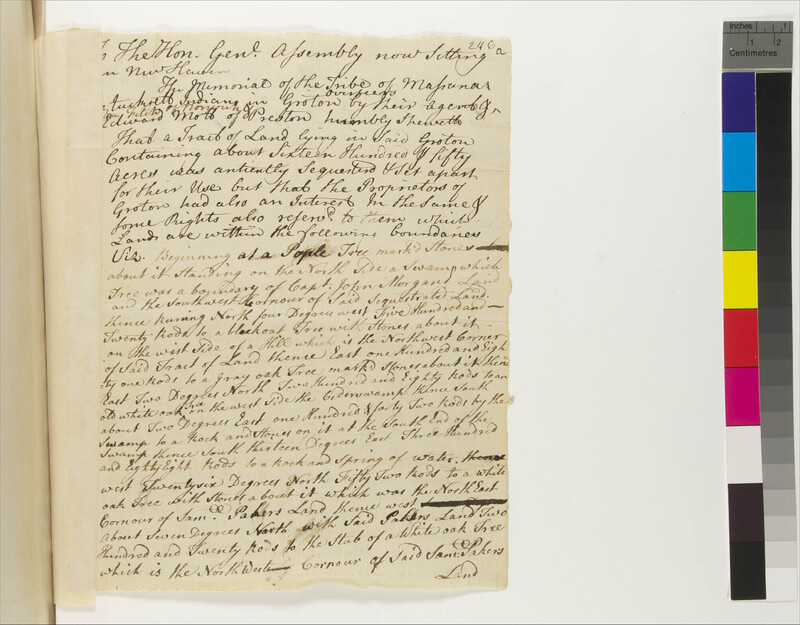 246
The Hon. Genl. Assembly now Sitting a
in New Haven
The Memorial of the Tribe of Mashan
tuckett Indians in Groton by their overseers agents &
Edward Mott of Preston humbly Sheweth
That a Tract of Land lying in Said Groton
Containing about Sixteen Hundred & fifty
Acres was antiently Sequesterd & Set apart
for their Use but that the Proprietors of
Groton had also an Interest in the Same &
Some Rights also reservd. to them which
Lands are within the following boundaries
Viz. Beginning at a Pople Tree markd Stones
about it Standing on the North Side a Swamp which
Tree was a boundary of Capt. John Morgans Land
and the Southwest Cornour of Said Sequestrated Land.
thence runing North four Degrees west Five Hundred and
Twenty Rods to a blackoak Tree with Stones about it
on the west Side of a Hill which is the Northwest Corner
of Said Tract of Land thence East one Hundred and Eigh
ty one Rods to a Gray oak Tree markd Stones about it thence
East Two Degrees North Two Hundred and Eighty Rods to an
old white oak Tree on the west Side the Cederswamp thence South
about Two Degrees East one Hundred & forty Two Rods by the
Swamp to a Rock and Stones on it at the South End of the
Swamp thence South thirteen Degrees East Three Hundred
and Eighty Eight Rods to a Rock and Spring of water. thence
west Twentysix Degrees North Fifty Two Rods to a white
oak Tree with Stones about it which was the North East
Cornour of Saml. Pakers Land thence west
About Seven Degrees North with Said Pakers Land Two
Hundred and Twenty Rods to the Stub of a White oak Tree
which is the North West Cornour of Said Saml. Pakers
Land
inches 1
1 2
Centimetres